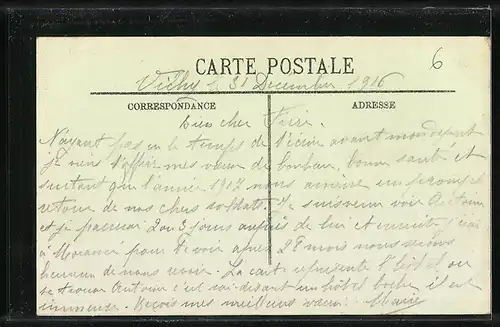 6
CARTE POSTALE
Vichy le 31 Décembre 1916
CORRESPONDANCE
ADRESSE
Bien cher Frère.
N'ayant pas eu le temps de t'écrire avant mon départ
je viens t'offrir mes vœux de bonheur, bonne santé et
surtout que l'année 1917 nous amène un prompt
retour de nos chers soldats. Je suis venu voir Antoine
et je passerai 2 ou 3 jours auprès de lui et ensuite j'irai
à pour te voir après 28 mois nous serons
heureux de nous revoir. La carte représente l'hôtel où
se trouve Antoine c'est soi-disant un hôtel boche, il est
immense. Reçois mes meilleurs vœux. Marie